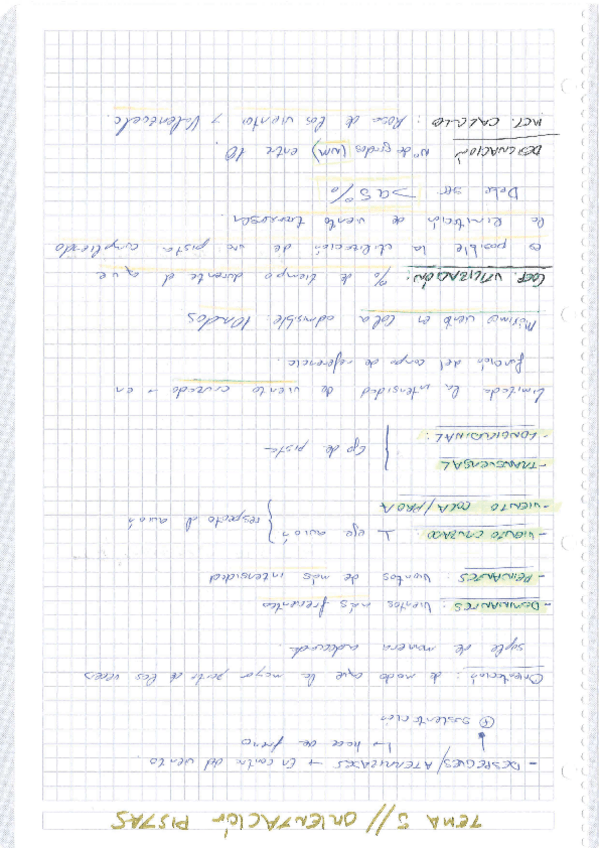 TEMA 5 // ORIENTACIÓN PISTAS
- DESPEGUES/ATERRIZAJES → En contra del viento.
↳ hace de freno
⊕ sustentación
Orientación: de modo que la mayor parte de las veces
sople de manera adecuada.
- DOMINANTES: Vientos más frecuentes
- REINANTES: Vientos de más intensidad
- VIENTO CRUZADO: ⊥ eje avión
- VIENTO COLA/PROA
} respecto al avión
- TRANSVERSAL
- LONGITUDINAL:
} eje de pista
Limitada la intensidad de viento cruzado → en
función del campo de referencia.
Máximo viento en cola admisible: 10 nudos
COEF UTILIZACIÓN: % de tiempo durante el que
es posible la utilización de una pista cumpliendo
la limitación de viento transversal.
Debe ser >95%
DESIGNACIÓN Nº de grados (NM) entre 10.
ACT. CÁLCULO: Rosa de los vientos y